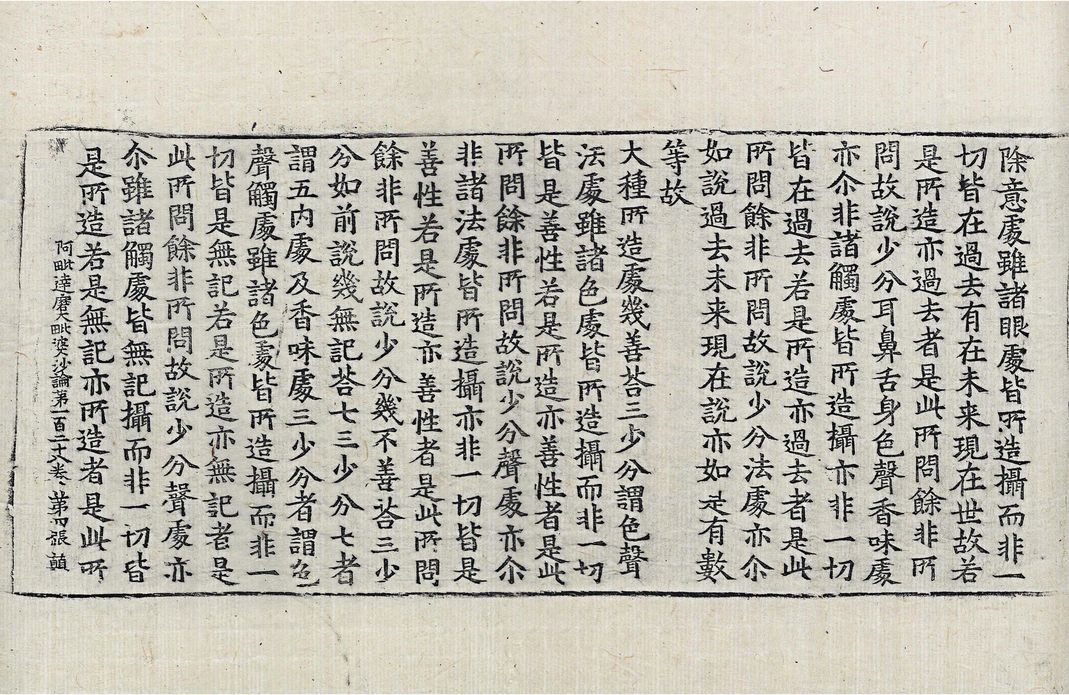 除意處雖諸眼處皆所造攝而非一
切皆在過去有在未来現在世故若
是所造亦過去者是此所問餘非所
問故說少分耳鼻舌身色聲香味處
亦尒非諸觸處皆所造攝亦非一切
皆在過去若是所造亦過去者是此
所問餘非所問故說少分法處亦尒
如說過去未来現在說亦如是有數
等故
大種所造處幾善荅三少分謂色聲
法處雖諸色處皆所造攝而非一切
皆是善性若是所造亦善性者是此
所問餘非所問故說少分聲處亦尒
非諸法處皆所造攝亦非一切皆是
善性若是所造亦善性者是此所問
餘非所問故說少分幾不善荅三少
分如前說幾無記荅七三少分七者
謂五內處及香味處三少分者謂色
聲觸處雖諸色處皆所造攝而非一
切皆是無記若是所造亦無記者是
此所問餘非所問故說少分聲處亦
尒雖諸觸處皆無記攝而非一切皆
是所造若是無記亦所造者是此所
阿毗達磨大毗婆沙論第一百二十八卷 第四張